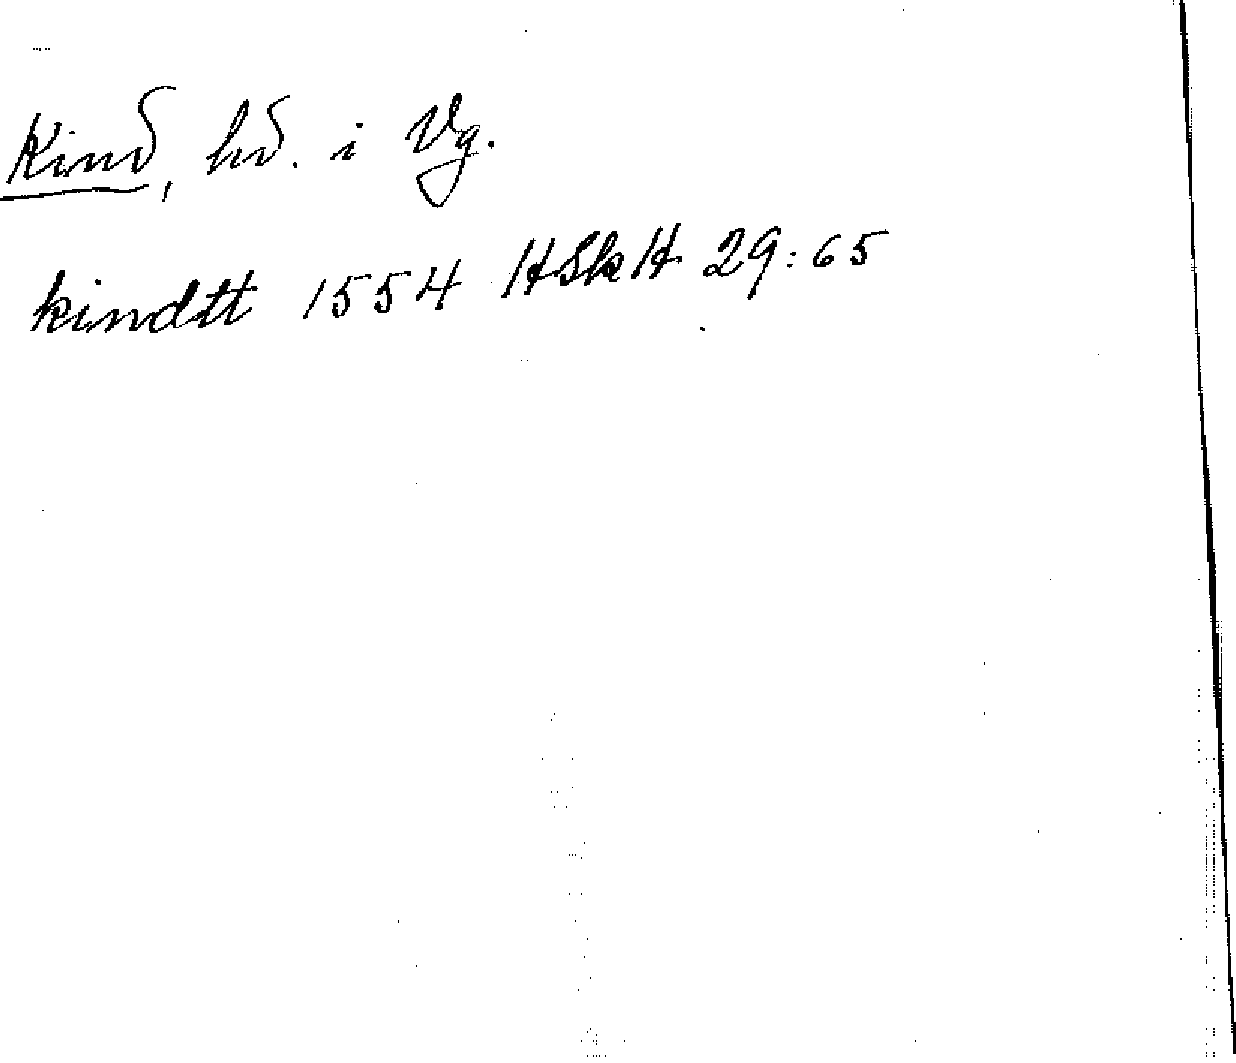 Kind, hd. i Vg.
kindtt 1554 HSkH 29:65